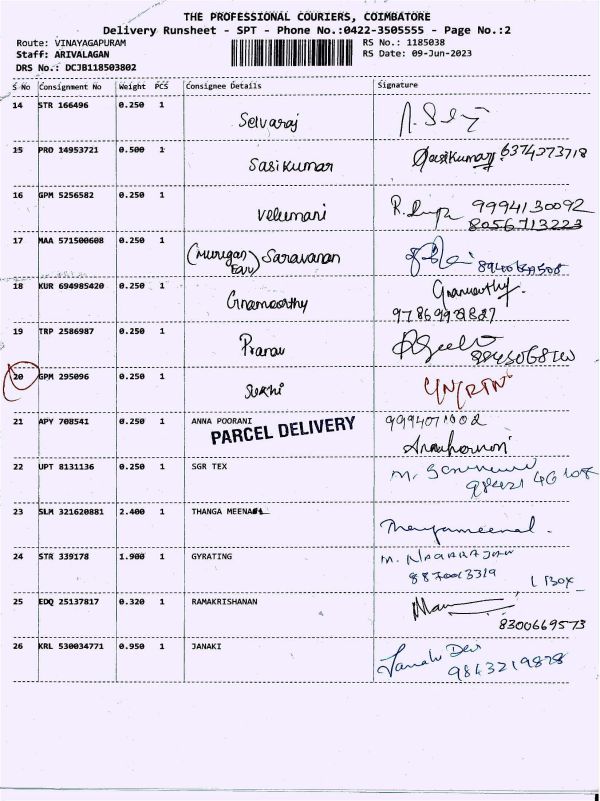 THE PROFESSIONAL COURIERS, COIMBATORE
Delivery Runsheet - SPT - Phone No.:0422-3505555 - Page No.:2
Route: VINAYAGAPURAM RS No.: 1185038
Staff: ARIVALAGAN RS Date: 09-Jun-2023
DRS No.: DCJB118503802
S No Consignment No Weight PCS Consignee Details Signature
14 STR 166496 0.250 1 Selvaraj
15 PRO 14953721 0.500 1 Sasikumar Sasikumar 6374273718
16 GPM 5256582 0.250 1 Velumani 9994130092
8056713223
17 MAA 571500608 0.250 1 (Murugan) Saravanan
18 KUR 694985420 0.250 1 Gnamoorthy Gnamoorthy
19 TRP 2586987 0.250 1 Pranav
20 GPM 295096 0.250 1 Sukhi
21 APY 708541 0.250 1 ANNA POORANI 9994071002
PARCEL DELIVERY
22 UPT 8131136 0.250 1 SGR TEX
23 SLM 321620881 2.400 1 THANGA MEENA Thangameenal.
24 STR 339178 1.900 1 GYRATING M. NAGARAJAN
1 Box
25 EDQ 25137817 0.320 1 RAMAKRISHANAN
8300669573
26 KRL 530034771 0.950 1 JANAKI Janaki Devi
9843219878